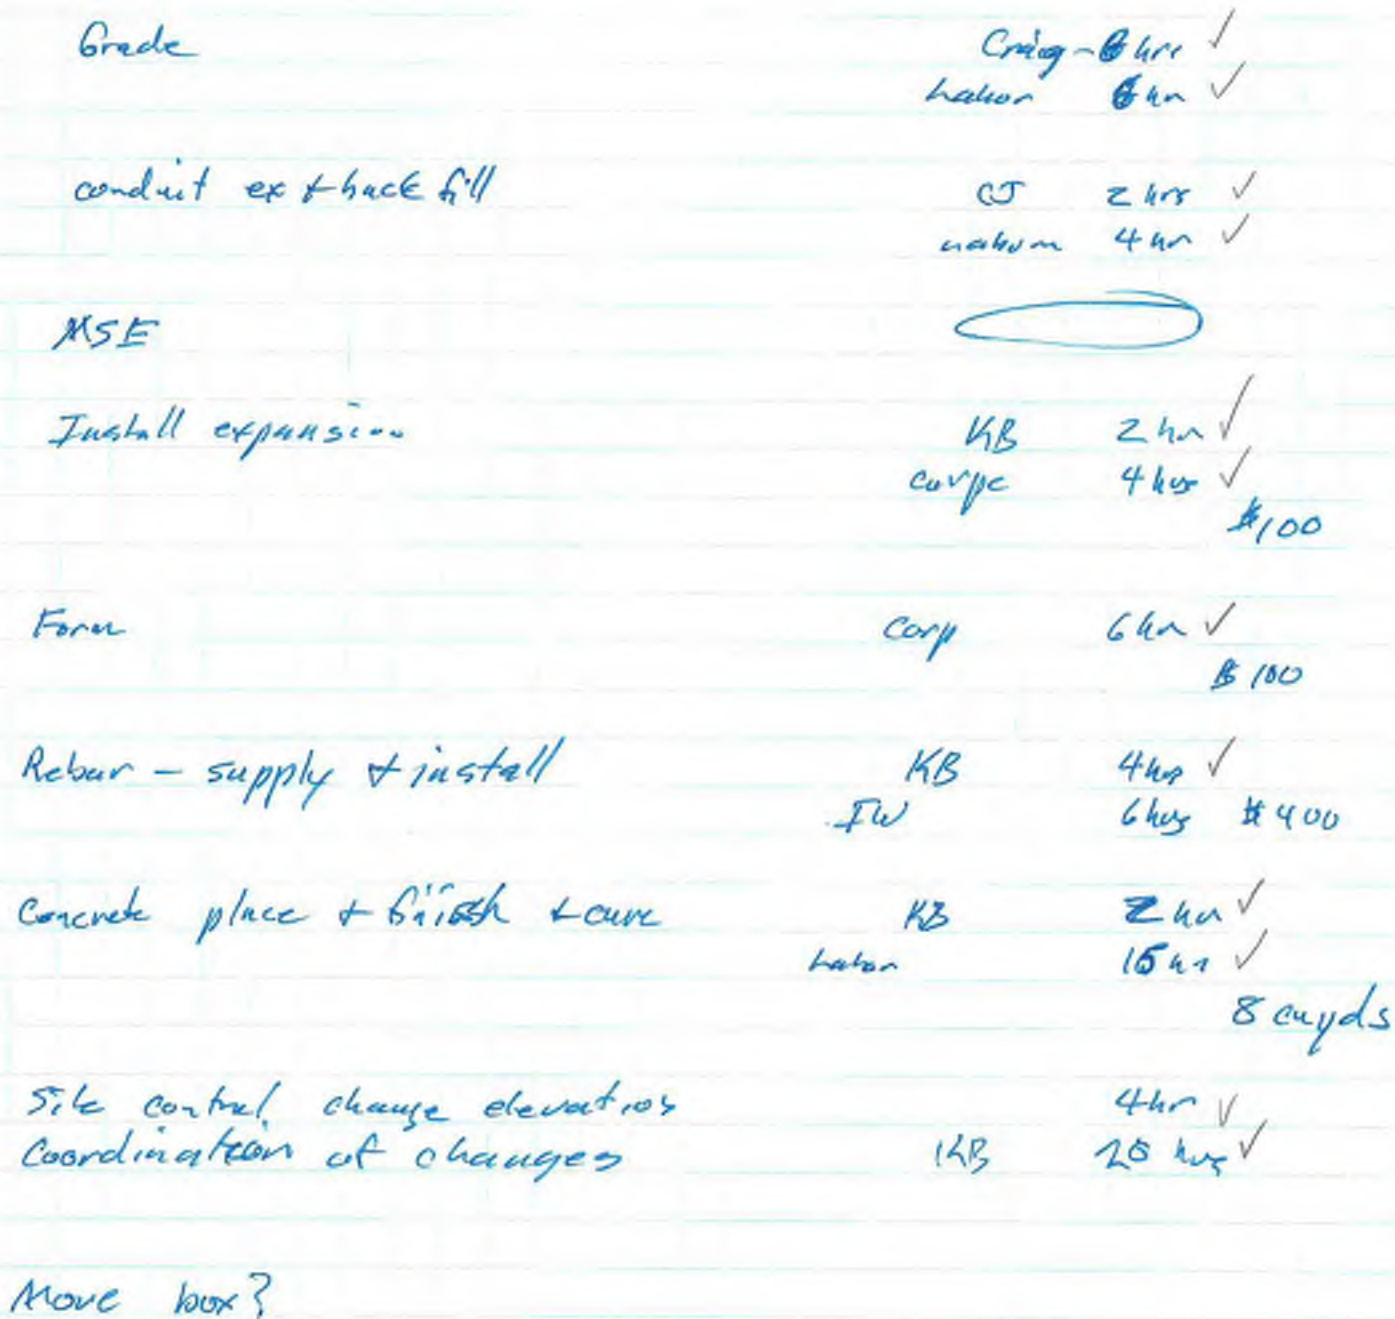 Grade Craig - 6 hrs ✓
Labor 6 hr ✓
conduit ex + backfill CJ 2 hrs ✓
4 hr ✓
MSE
Install expansion KB 2 hr ✓
carpe 4 hrs ✓
$100
Form carp 6 hr ✓
$100
Rebar – supply + install KB 4 hrs ✓
IW 6 hrs $400
Concrete place + finish + cure KB 2 hr ✓
Labor 15 hr ✓
8 cuyds
Site control change elevations 4 hr ✓
Coordination of changes KB hrs ✓
Move box?